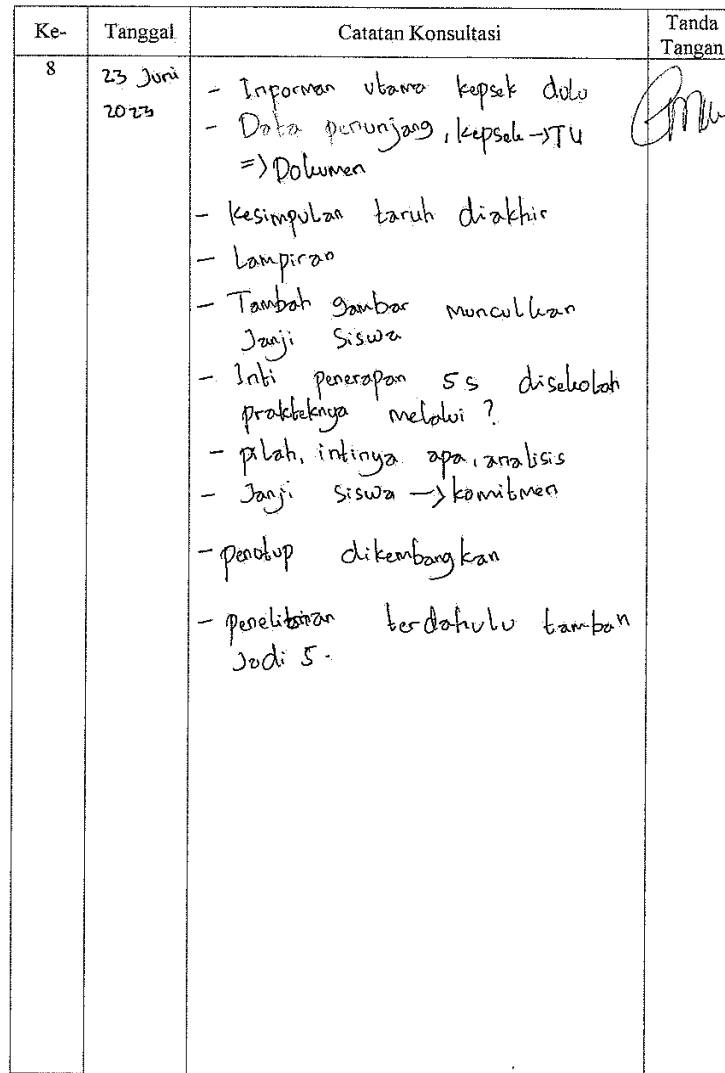 Ke-
Tanggal
Catatan Konsultasi
Tanda
Tangan
8
23 Juni
2023
- Inporman utama kepsek dulu
- Data penunjang, kepsek → TU
=> Dokumen
- Kesimpulan taruh diakhir
- Lampiran
- Tambah gambar munculkan
Janji Siswa
- Inti penerapan 5s disekolah
prakteknya melalui ?
- pilah, intinya apa, analisis
- Janji Siswa → komitmen
- penutup dikembangkan
- penelitian terdahulu tambah
Jadi 5.